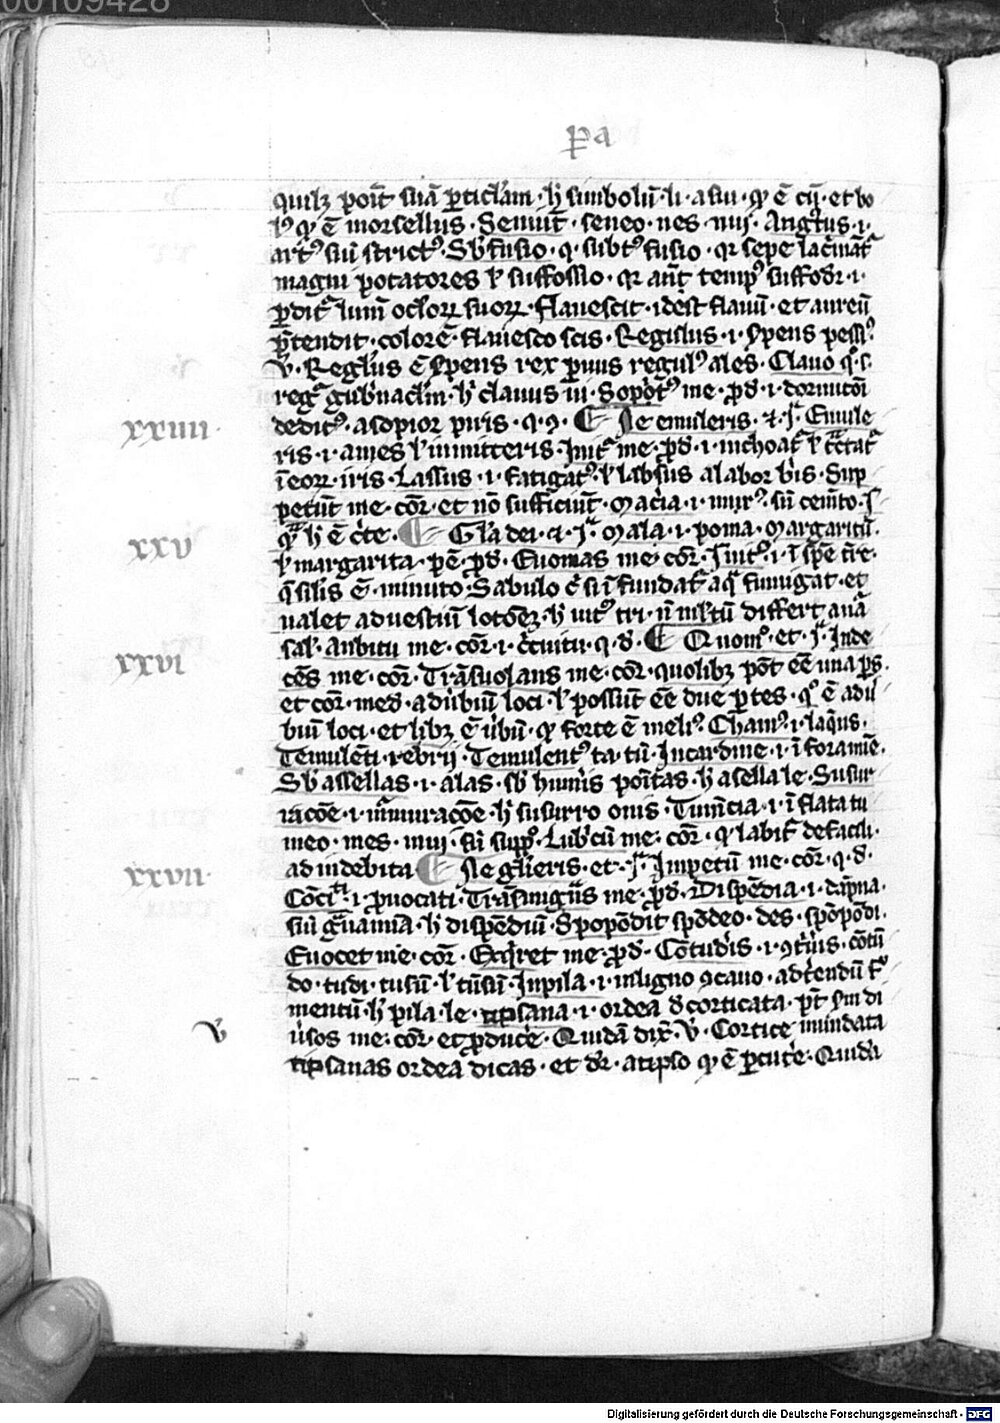 00109428
Pa
quilꝫ poīt suā ꝑticlam · h̄ simbolū · li · a siu · qꝫ ē cū · et bo
lꝰ qꝫ ē morsellus · Senuit · seneo · nes · nuj · Angtus · i ·
artꝰ siū strictꝰ · Sb'fusio · q · subtꝰ fusio · qr sepe lacͥmat᷑
magni potatores ł suffossio · qr ant̄ tempꝰ suffodr · i ·
ꝑdit᷑ lumē oclorꝝ suorꝝ · Flauescit · idest flauū · et aureū
ꝓtendit · colorē · flauesco scis · Regulus · i · sꝑens pessꝰ
v̄ · Reglus ē sꝑens rex ꝑuus regulꝰ ales · Clauo
regͣ gubnaclm · h' clauus ui · Soporͥtꝰ me · ꝓd · i · dormitōi
deditꝰ · a sopior piris · q · 9 · Ne emuleris · &c · Jͣ · Emule
ris · i · ames ł inmitteris · Init᷑ me · ꝓd · i · inchoat᷑ ł
ī eorꝝ · iris · Lassus · i · fatigatꝰ · ł labsus a labor bͥis · Sup
petūt me · cōr · et nō sufficiūt · Maͨia · i · murꝰ · sn̄ cemto · s
qͣ h̄ ē cͥte · Gla dei · &c · Jͣ · Mala · i · poma · Margaritū
ł margarita · pē · ꝓd · Euomas me · cōr ·
q̄ silis ē · minuto · Sabulo fundat᷑ aq̄ fumigat · et
ualet ad uestiū lotōeꝫ · h̄ uitꝰ tri · n̄ mltū differt auā
sal · Anbitu me · cōr · i · cͥcuitu · q · d · Quomͦ · et · Jͣ · Inde
cēs me · cōr · Trāsuolans me · cōr · quolibꝫ pōt eē una ꝑs
et cōr · med · adūbiū loci · ł possūt eē due ꝑtes · qͦ ē adū
biū loci · et libꝫ ē ūbū · qꝫ forte ē meliꝰ · Chamꝰ · i · laq̄us ·
Temulēti · i · ebrij · Temulentꝰ ta tū · In cardine · i · ī foramīe
Sb' assellas · i · alas · sb' humis poītas · h̄ asella le · Susur
racōe · i · mͥmuracōe · h̄ susurro onis · Tumēcia · i · īflata tu
meo · mes · mui · sn̄ supꝰ · Lubͥcū me · cōr · qꝫ labit᷑ de facili
ad indebita · Ne glieris · et · Jͣ · Impetū me · cōr · q · d ·
Cōciti · i · ꝓuocati · Trāsmigrās me · ꝓd · Dispēdia · i · dāpna
siū gͣuamīa · h̄ dispēdiū · Spopōdit spōdeo · des · spōpōdi
Euocet me · cōr · Exqͥret me · ꝓd · Cōtudis · i · ꝯtͥuis · cōtū
do · tudi · tusū · ł tūsū · In pila · i · in ligno ꝯcauo · ad tͥendū fͦ
mentū · h' pila · le · tipsana · i · ordea dͨorticata · pͥt
ūsos me · cōr · et ꝓducͥe · Quidā dix̄ · v̄ · Cortice mundata
tipsanas ordea dicas · et dͥr · a tipso qꝫ ē ꝑcutͥe · Quidā
xxiiii ·
xxv
xxvi
xxvii ·
v̄
Digitalisierung gefördert durch die Deutsche Forschungsgemeinschaft · DFG